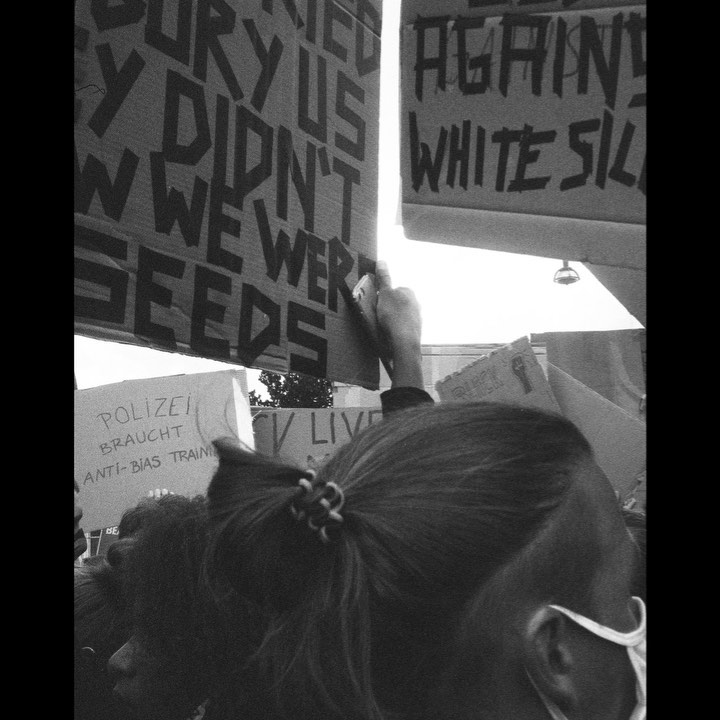 RIED
BURY US
EY DIDN'T
W WE WERE
SEEDS
AGAINS
WHITE SIL
POLIZEI
BRAUCHT
ANTI-BIAS TRAINI
CK LIV